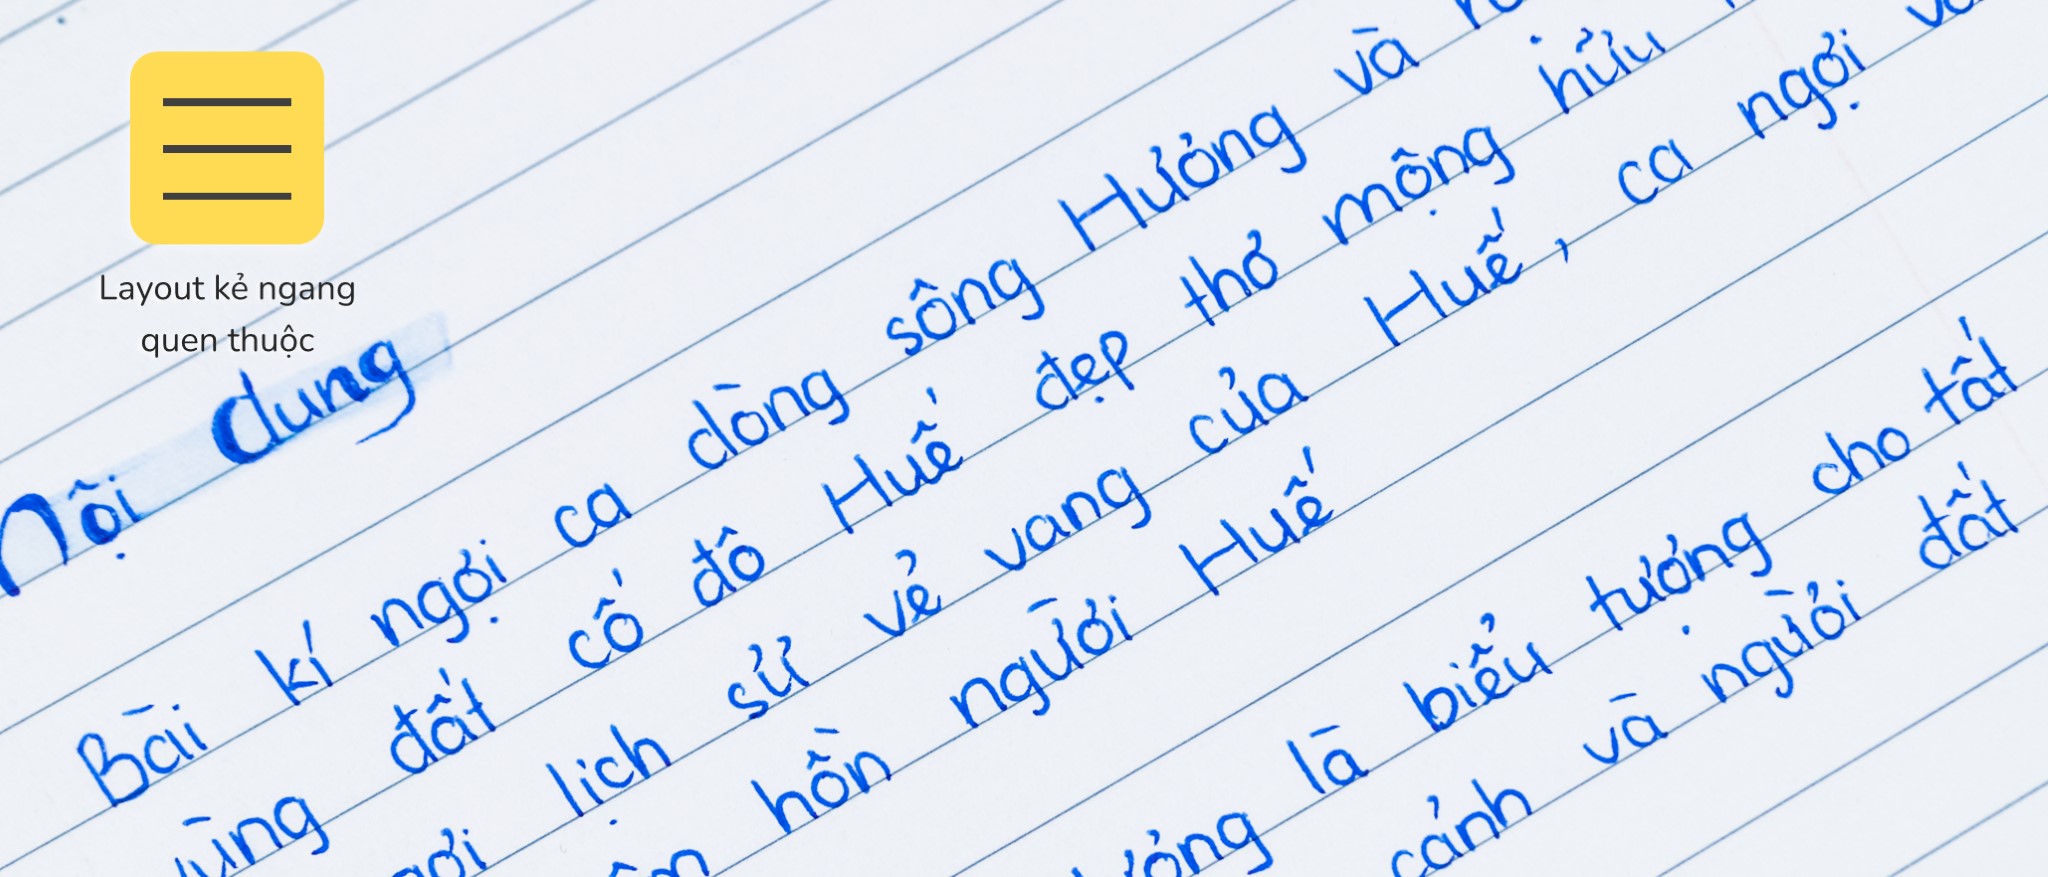 Layout kẻ ngang
quen thuộc
Nội dung
Bài kí ngợi ca dòng sông Hương và
vùng đất cố đô Huế đẹp thơ mộng hữu
lịch sử vẻ vang của Huế, ca ngợi
hồn người Huế
là biểu tượng cho tất
cảnh và người đất